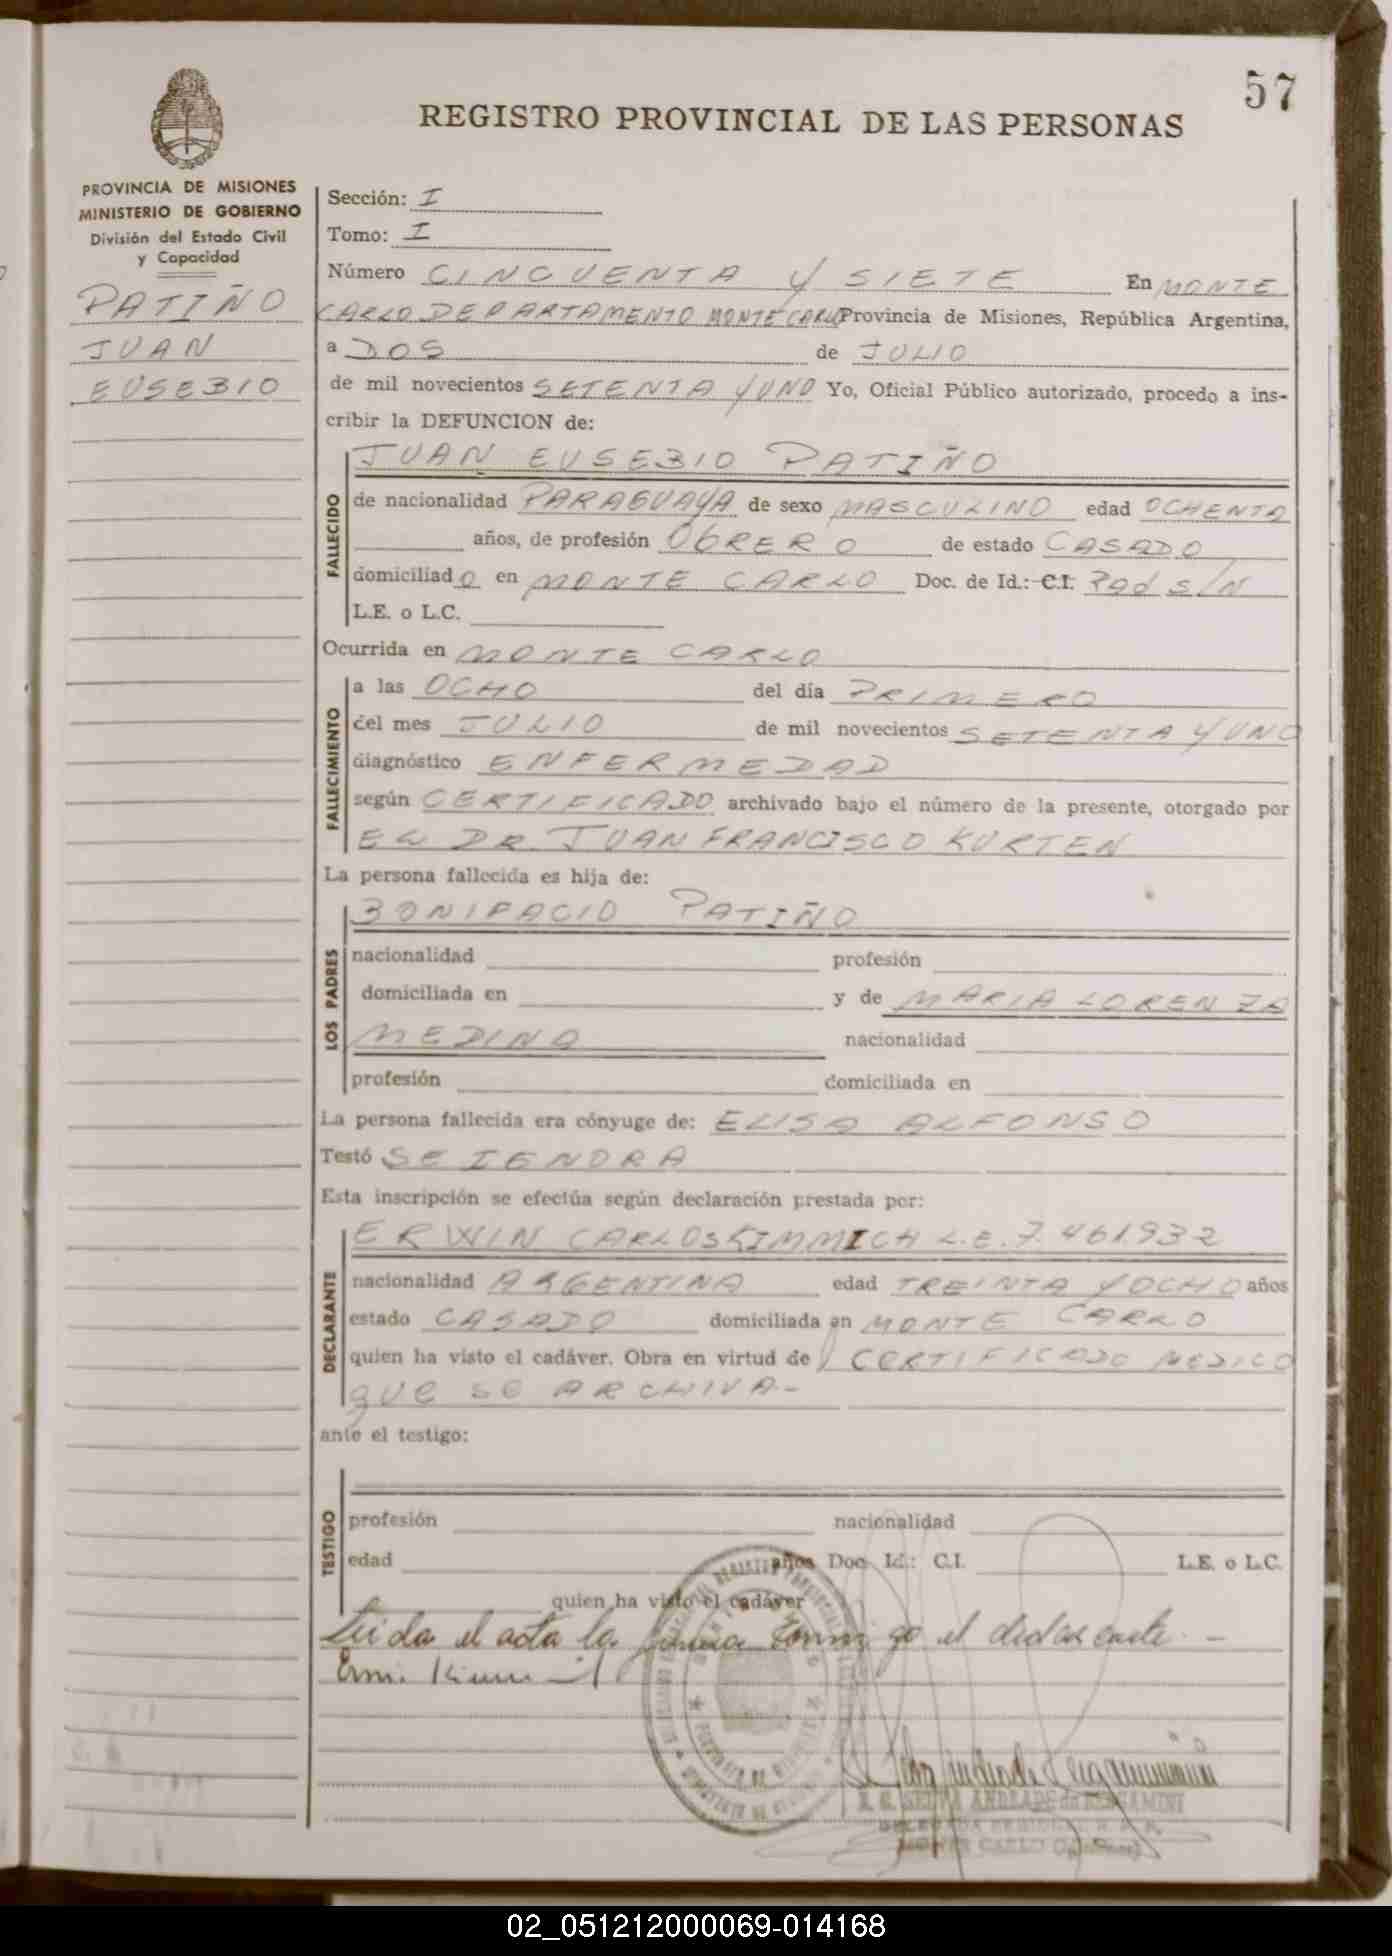 57
REGISTRO PROVINCIAL DE LAS PERSONAS
PROVINCIA DE MISIONES
MINISTERIO DE GOBIERNO
División del Estado Civil
y Capacidad
PATIÑO
JUAN
EUSEBIO
Sección: I
Tomo: I
Número CINCUENTA Y SIETE En MONTE
CARLO DEPARTAMENTO MONTECARLO Provincia de Misiones, República Argentina,
a DOS de JULIO
de mil novecientos SETENTA Y UNO Yo, Oficial Público autorizado, procedo a ins-
cribir la DEFUNCION de:
FALLECIDO
JUAN EUSEBIO PATIÑO
de nacionalidad PARAGUAYA de sexo MASCULINO edad OCHENTA
años, de profesión OBRERO de estado CASADO
domiciliado en MONTE CARLO Doc. de Id.: C.I. Pad S/N
L.E. o L.C.
Ocurrida en MONTE CARLO
FALLECIMIENTO
a las OCHO del día PRIMERO
del mes JULIO de mil novecientos SETENTA Y UNO
diagnóstico ENFERMEDAD
según CERTIFICADO archivado bajo el número de la presente, otorgado por
EL DR. JUAN FRANCISCO KURTEN
La persona fallecida es hija de:
LOS PADRES
BONIFACIO PATIÑO
nacionalidad profesión
domiciliada en y de MARIA LORENZA
MEDINA nacionalidad
profesión domiciliada en
La persona fallecida era cónyuge de: ELISA ALFONSO
Testó SE IGNORA
Esta inscripción se efectúa según declaración prestada por:
DECLARANTE
ERWIN CARLOS KIMMICH L.E. 7.461932
nacionalidad ARGENTINA edad TREINTA Y OCHO años
estado CASADO domiciliada en MONTE CARLO
quien ha visto el cadáver. Obra en virtud de CERTIFICADO MEDICO
QUE SE ARCHIVA.-
ante el testigo:
TESTIGO
profesión nacionalidad
edad años Doc. Id.: C.I. L.E. o L.C.
quien ha visto el cadáver
Leida el acta la firma conmigo el declarante. -
S. C. SELVA ANDRADE de BERGAMINI
DELEGADA REGIONAL R. P. P.
MONTE CARLO
02_051212000069-014168